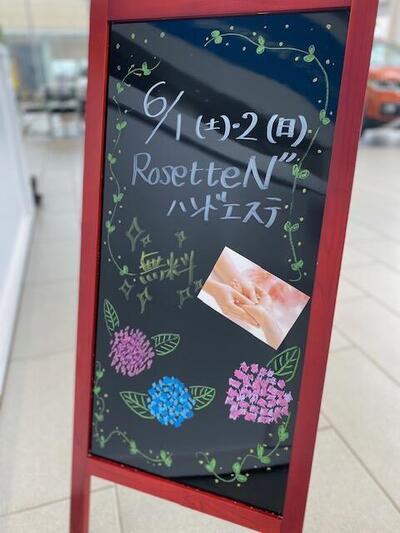 6/1(土)・2(日)
RosetteN”
ハンドエステ
無料